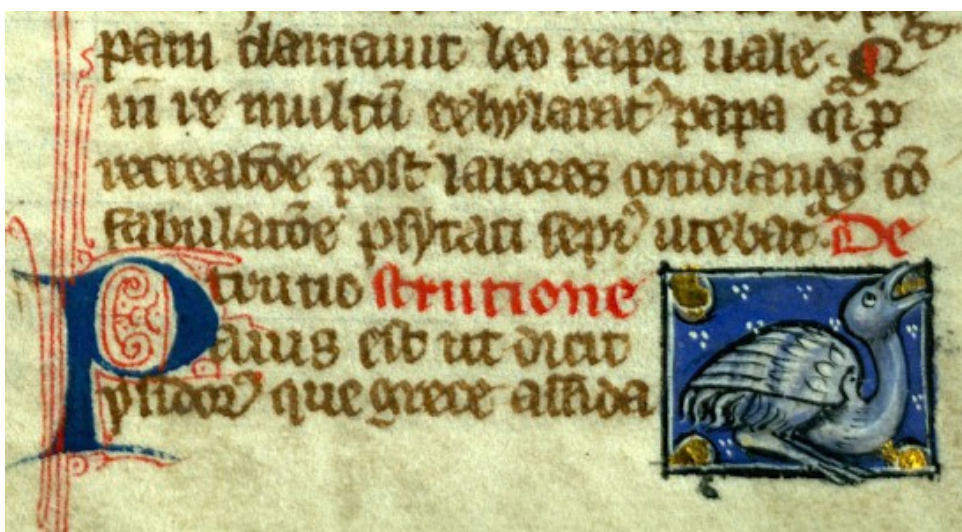 pam clamauit leo papa uale. Q
in re multū exhylarat᷒ papa qi ꝓ
recreatōe post labores cotidianos cō
fabulatōe psytaci sepi᷒ utebat. De
P tirutio strutione
auis est ut dicit
ysidor᷒ que grece assida